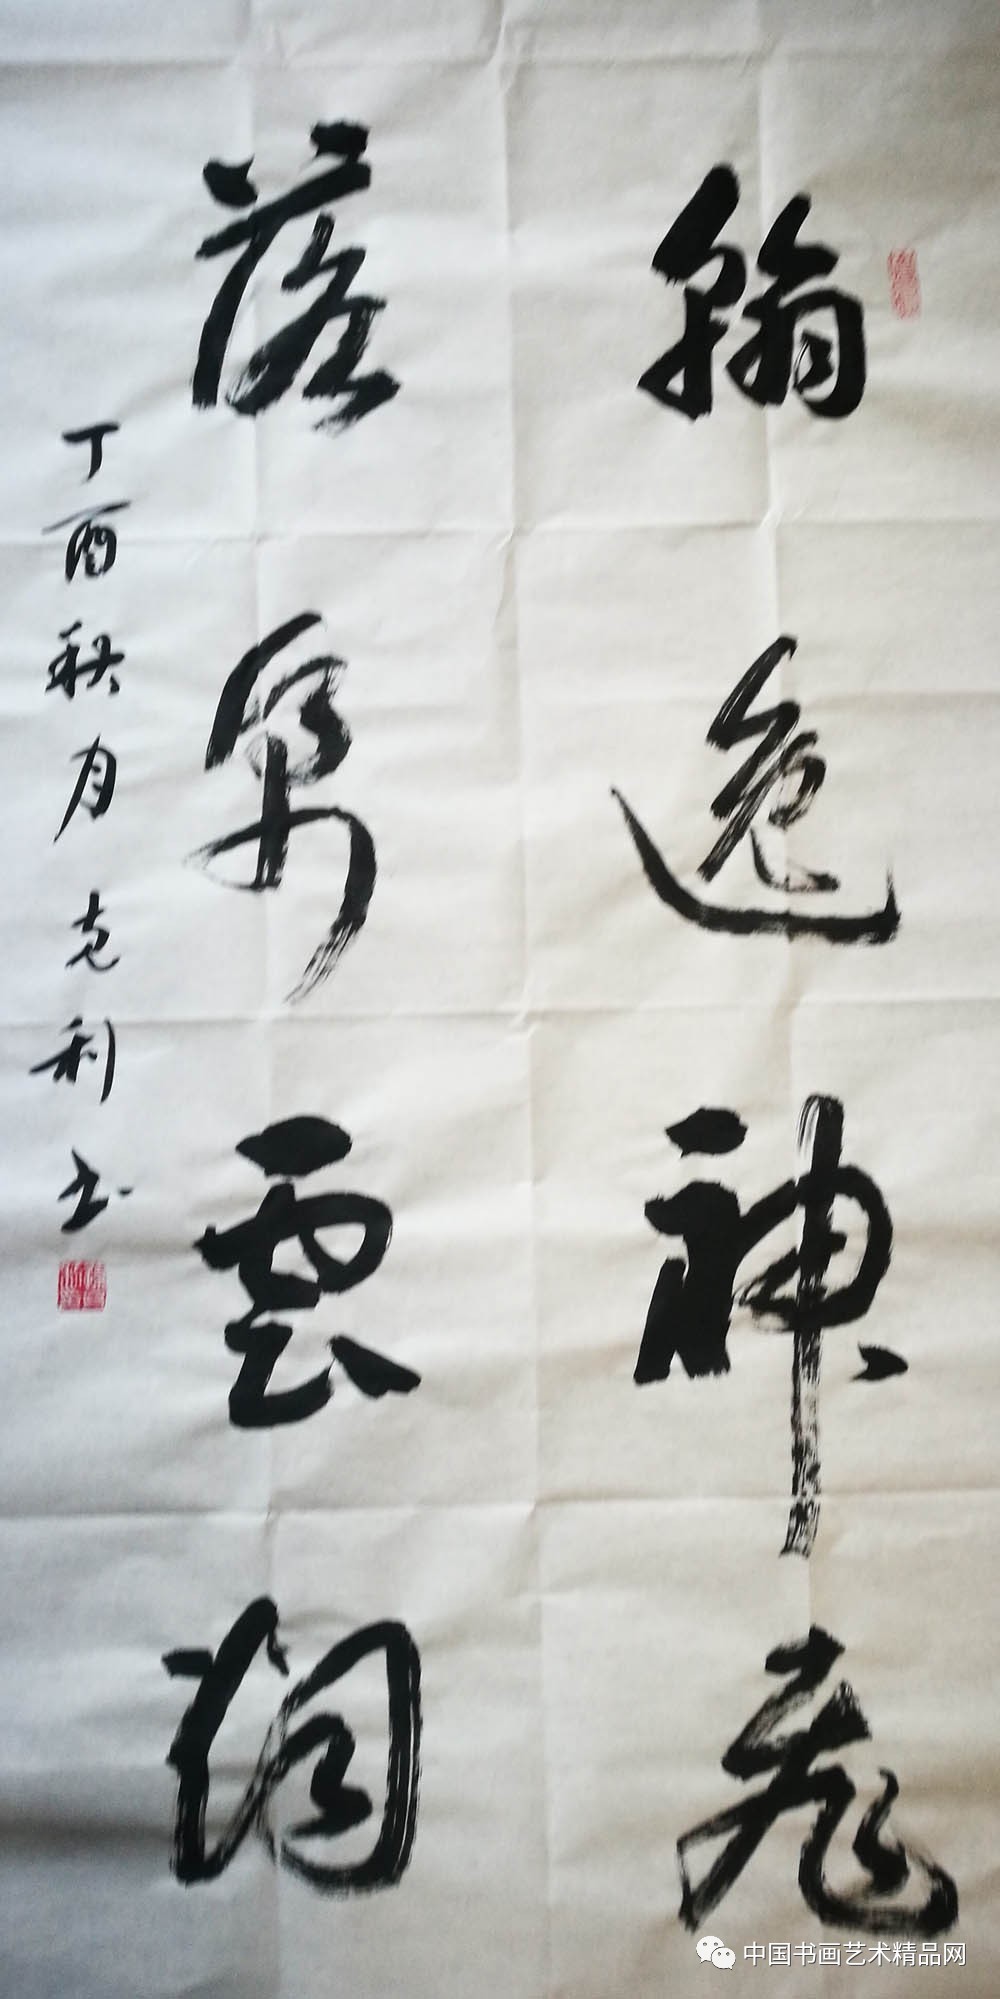 翰逸神飛
落帋雲烟
丁酉秋月克利书
中国书画艺术精品网